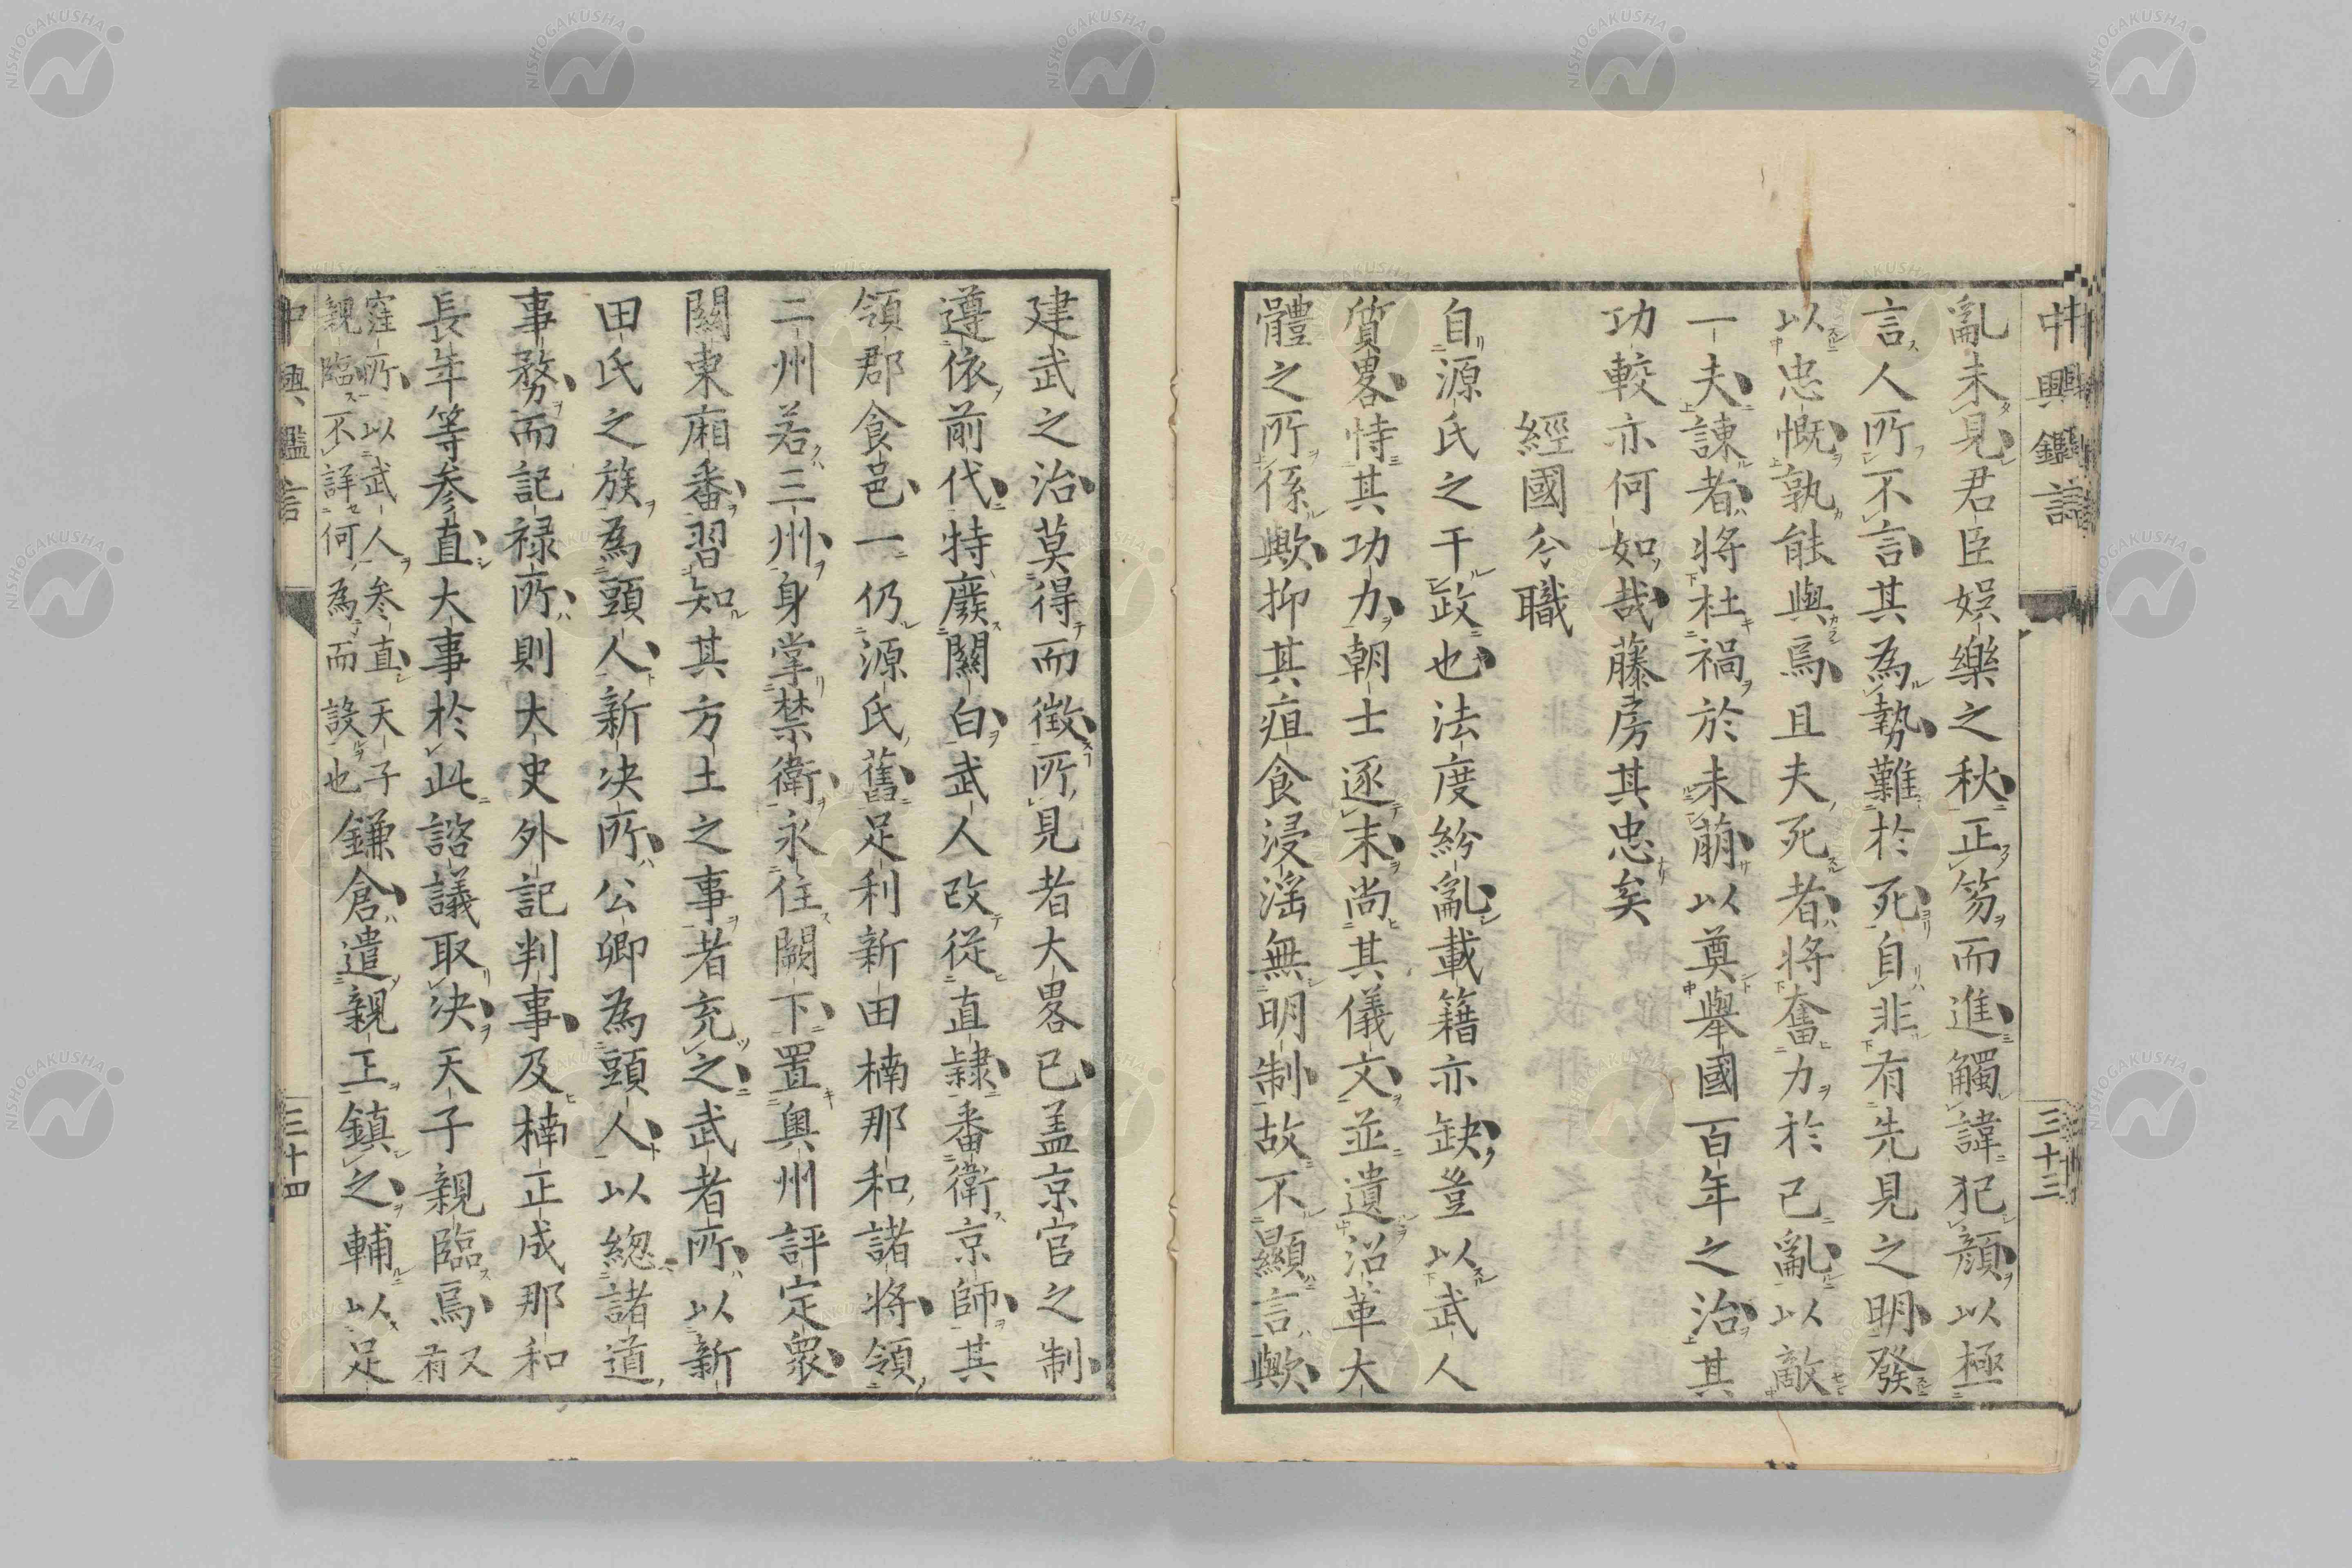 中興鑑言
三十三
亂未見君臣娯樂之秋正笏而進觸諱犯顔以極
言人所不言其為勢難於死自非有先見之明發
以忠慨孰能與焉且夫死者將奮力於已亂以敵
一夫諌者將杜禍於未萠以奠擧國百年之治其
功較亦何如哉藤房其忠矣
經國分職
自源氏之干政也法度紛亂載籍亦缺豈以武人
質畧恃其功力朝士逐末尚其儀文並遺沿革大
體之所係歟抑其疽食浸淫無明制故不顯言歟
建武之治莫得而徴所見者大畧已盖京官之制
遵依前代特廢關白武人改從直隷番衛京師其
領郡食邑一仍源氏舊足利新田楠那和諸將領
二州若三州身掌禁衛永住闕下置奥州評定衆
關東廂番習知其方土之事者充之武者所以新
田氏之族為頭人新决所公卿為頭人以總諸道
事務而記禄所則大史外記判事及楠正成那和
長年等参直大事於此諮議取决天子親臨焉又
有
窪所以武人参直天子
親臨不詳何為而設也
鎌倉遣親王鎮之輔以足
中興鑑言
三十四
NISHOGAKUSHA